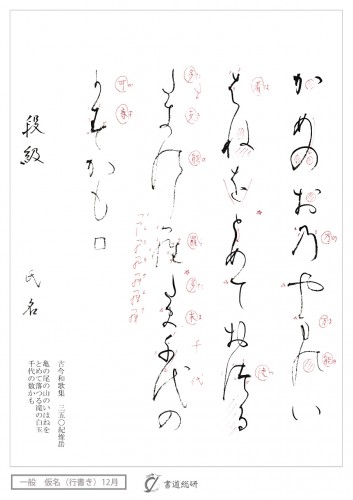 かめのお乃やま能い
者ねをとめておつる
多支能し羅多ま千代の
可春かも□
段級　氏名
古今和歌集　三五〇紀惟岳
亀の尾の山のいはねを
とめて落つる滝の白玉
千代の数かも
一般　仮名（行書き）12月
書道総研